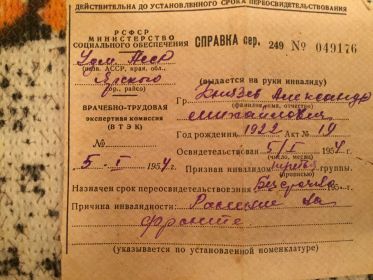 ДЕЙСТВИТЕЛЬНА ДО УСТАНОВЛЕННОГО СРОКА ПЕРЕОСВИДЕТЕЛЬСТВОВАНИЯ
РСФСР
МИНИСТЕРСТВО
СОЦИАЛЬНОГО ОБЕСПЕЧЕНИЯ
СПРАВКА сер. 249 № 049176
Удм АССР
(наим. АССР, края, обл.
гор. райсо)
(выдается на руки инвалиду)
Гр. Князев Александр
(фамилия, имя, отчество)
Михайлович
ВРАЧЕБНО-ТРУДОВАЯ
экспертная комиссия
(ВТЭК)
Год рождения 1922 Акт № 14
Освидетельствован 5/I 1954 г.
(число, месяц)
№
5-I 1954 г.
Признан инвалидом третьей группы.
(прописью)
Назначен срок переосвидетельствования Бессрочно 195 г.
Причина инвалидности: Ранение на
фронте
(указывается по установленной номенклатуре)